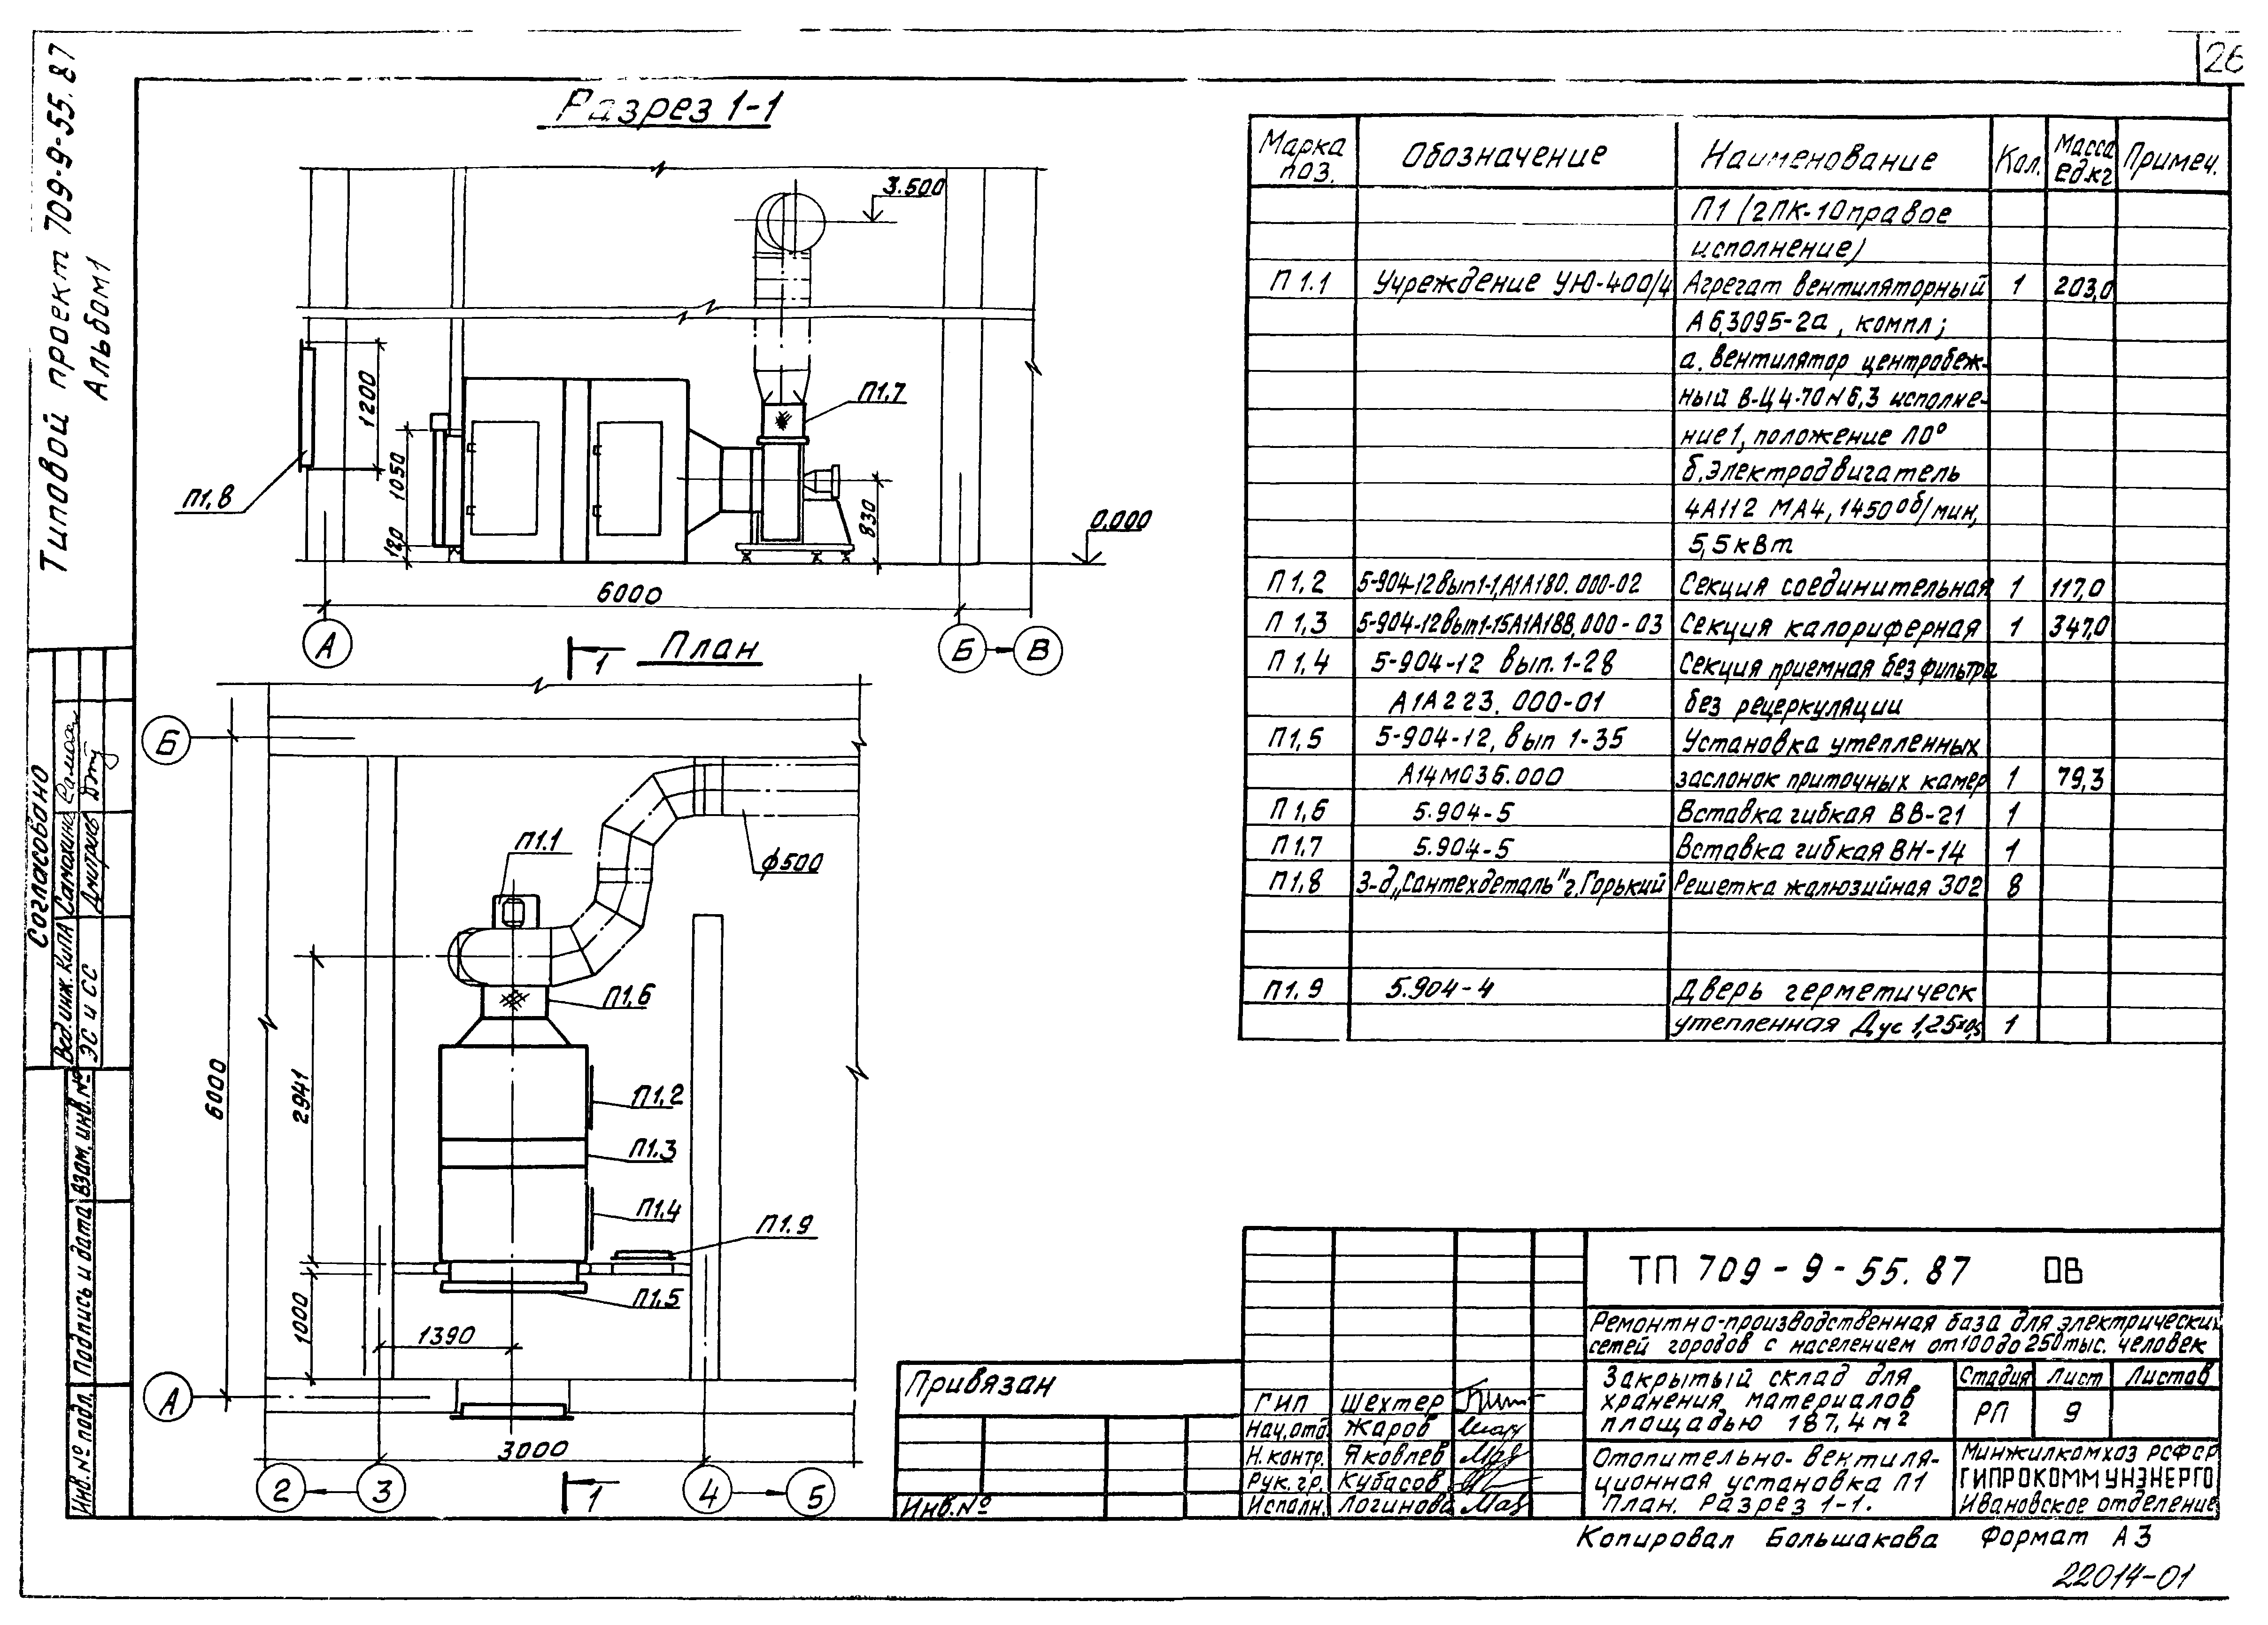 26
Типовой проект 709-9-55.87
Альбом 1
Разрез 1-1
3.500
П1,7
1200
П1,8
1050
120
830
0,000
6000
А
Б
В
План
1
Б
6000
П1.1
ф500
П1,6
2941
П1,2
П1.3
П1.4
П1.9
П1.5
1000
1390
А
3000
2
3
1
4
5
Марка поз.
Обозначение
Наименование
Кол.
Масса ед кг
Примеч.
П1 (2ПК-10 правое
исполнение)
П 1.1 Учреждение УЮ-400/4 Агрегат вентиляторный 1 203,0
А 6,3095-2а, компл;
а. Вентилятор центробеж-
ный В-Ц4-70 №6,3 исполне-
ние 1, положение Л0°
б. Электродвигатель
4А112 МА4, 1450 об/мин,
5,5 кВт
П 1,2 5-904-12 вып 1-1, А1А180.000-02 Секция соединительная 1 117,0
П 1,3 5-904-12 вып 1-15 А1А188.000-03 Секция калориферная 1 347,0
П 1,4 5-904-12 вып. 1-28 Секция приемная без фильтра
А1А223.000-01 без рецеркуляции
П1,5 5-904-12, вып 1-35 Установка утепленных
А14М036.000 заслонок приточных камер 1 79,3
П 1,6 5.904-5 Вставка гибкая ВВ-21 1
П 1,7 5.904-5 Вставка гибкая ВН-14 1
П1,8 З-д „Сантехдеталь" г. Горький Решетка жалюзийная 302 8
П1.9 5.904-4 Дверь герметическ
утепленная Дус 1,25х0,5 1
Согласовано
Вед. инж. КиПА Самохина
ЭС и СС Дмитриев
Инв.№ подл. Подпись и дата Взам. инв.№
Привязан
Инв.№
ГИП Шехтер
Нач. отд. Жаров
Н. контр. Яковлев
Рук. гр. Кубасов
Исполн. Логинова
ТП 709-9-55.87 ОВ
Ремонтно-производственная база для электрических
сетей городов с населением от 100 до 250 тыс. человек
Закрытый склад для
хранения материалов
площадью 187,4 м²
Стадия Лист Листов
РП 9
Отопительно-вентиля-
ционная установка П1
План. Разрез 1-1.
Минжилкомхоз РСФСР
ГИПРОКОММУНЭНЕРГО
Ивановское отделение
Копировал Большакова Формат А3
22014-01